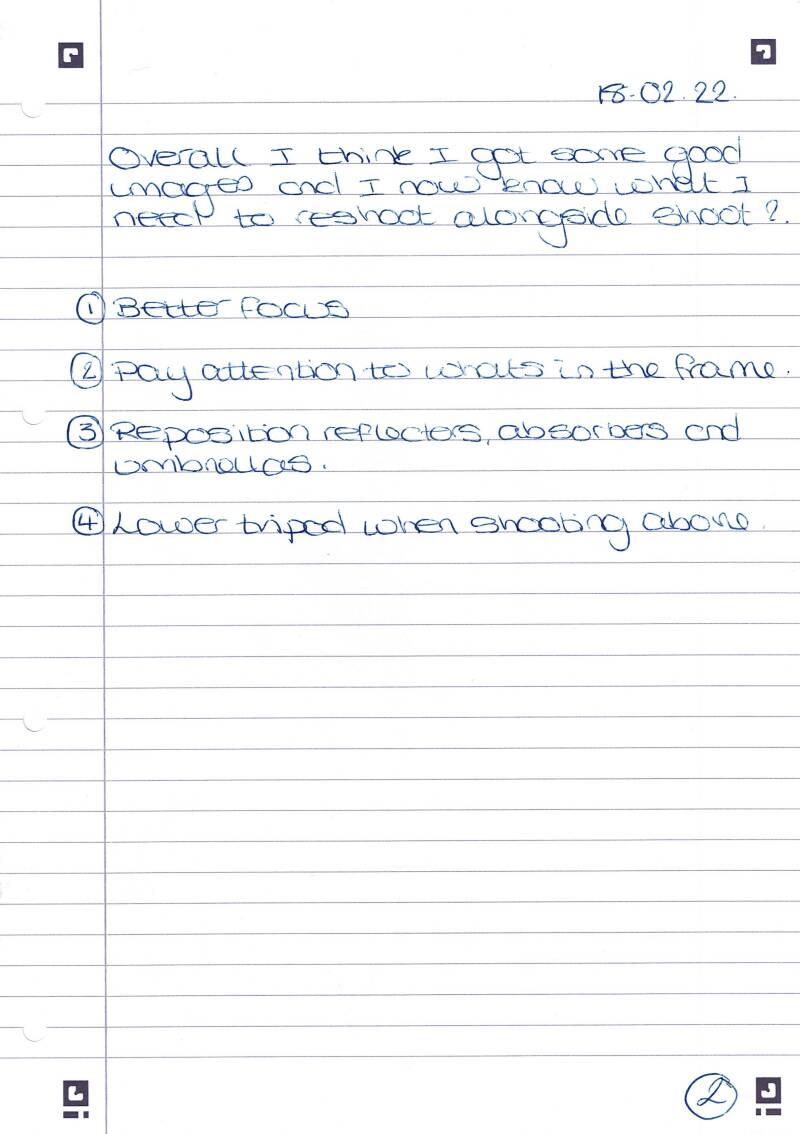 18.02.22.
Overall I think I got some good
images and I now know what I
need to reshoot alongside shoot 2.
① Better focus
② Pay attention to whats in the frame.
③ Reposition reflectors, absorbers and
umbrellas.
④ Lower tripod when shooting above.
②